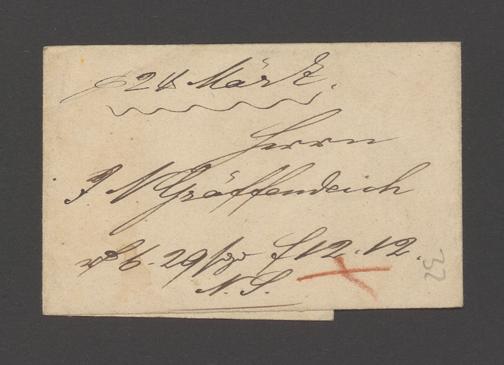 p 24 März.
Herrn
J N Gräffendeich
6. 29/30 f 12.12.
N. S.
32